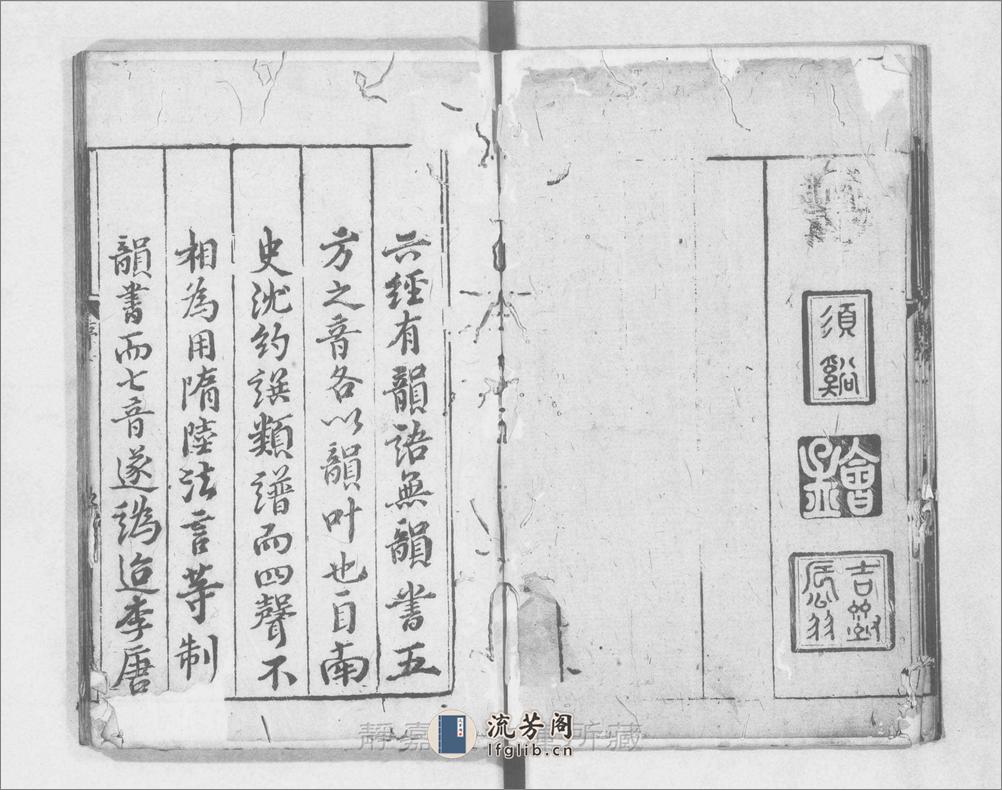 須谿
會孟
六經有韻語無韻書五
方之音各以韻叶也自南
史沈約譔類譜而四聲不
相為用隋陸法言等制
韻書而七音遂譌迨李唐
靜嘉
所藏
流芳阁
lfglib.cn